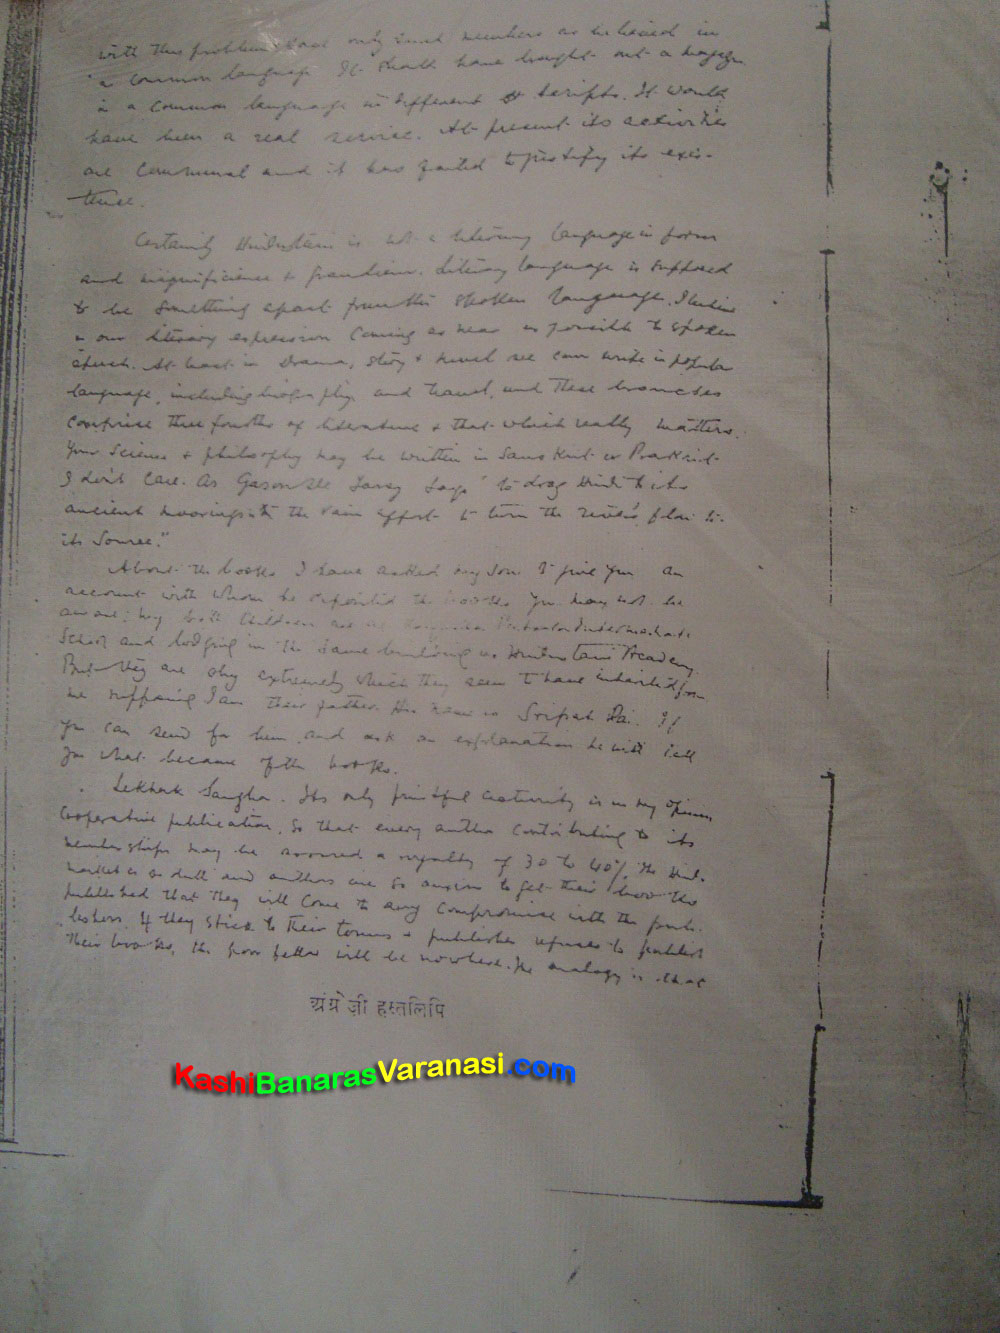 with this problem and only such members as believed in
a common language. It should have brought out a magaz
in a common language in different scripts. It would
have been a real service. At present its activities
are communal and it has failed to justify its exis-
tence.
Certainly Hindustani is not a literary language in form
and magnificience & grandieur. Literary language is supposed
to be something apart from the spoken language. I believe
in our literary expression coming as near as possible to spoken
speech. At least in Drama, story & novel we can write in popular
language, including biography and travel, and these branches
comprise three fourths of literature & that which really matters.
Your Science & philosophy may be written in Sanskrit or Prakrit
I don't care. As says "to drag Hindi to its
ancient moorings is the vain effort to turn the river's flow to
its Source."
About the books I have asked my son to give you an
account with whom he deposited the books. You may not be
aware, my both children are at Intermediate
School and lodging in the same building as Hindustani Academy
But they are shy extremely which they seem to have inherited from
me supposing I am their father. His name is Sripat Rai. If
you can send for him and ask an explanation he will tell
you what became of the books.
Lekhak Sangha. Its only fruitful activity is in my opinion
Cooperative publication, so that every author contributing to its
membership may be assured a royalty of 30 to 40%. The Hindi
market is so dull and authors are so anxious to get their books
published that they will come to any compromise with the pub-
lishers. If they stick to their terms & publisher refuses to publish
their books, the poor fellow will be nowhere. The analogy is that
अंग्रेज़ी हस्तलिपि
KashiBanarasVaranasi.com